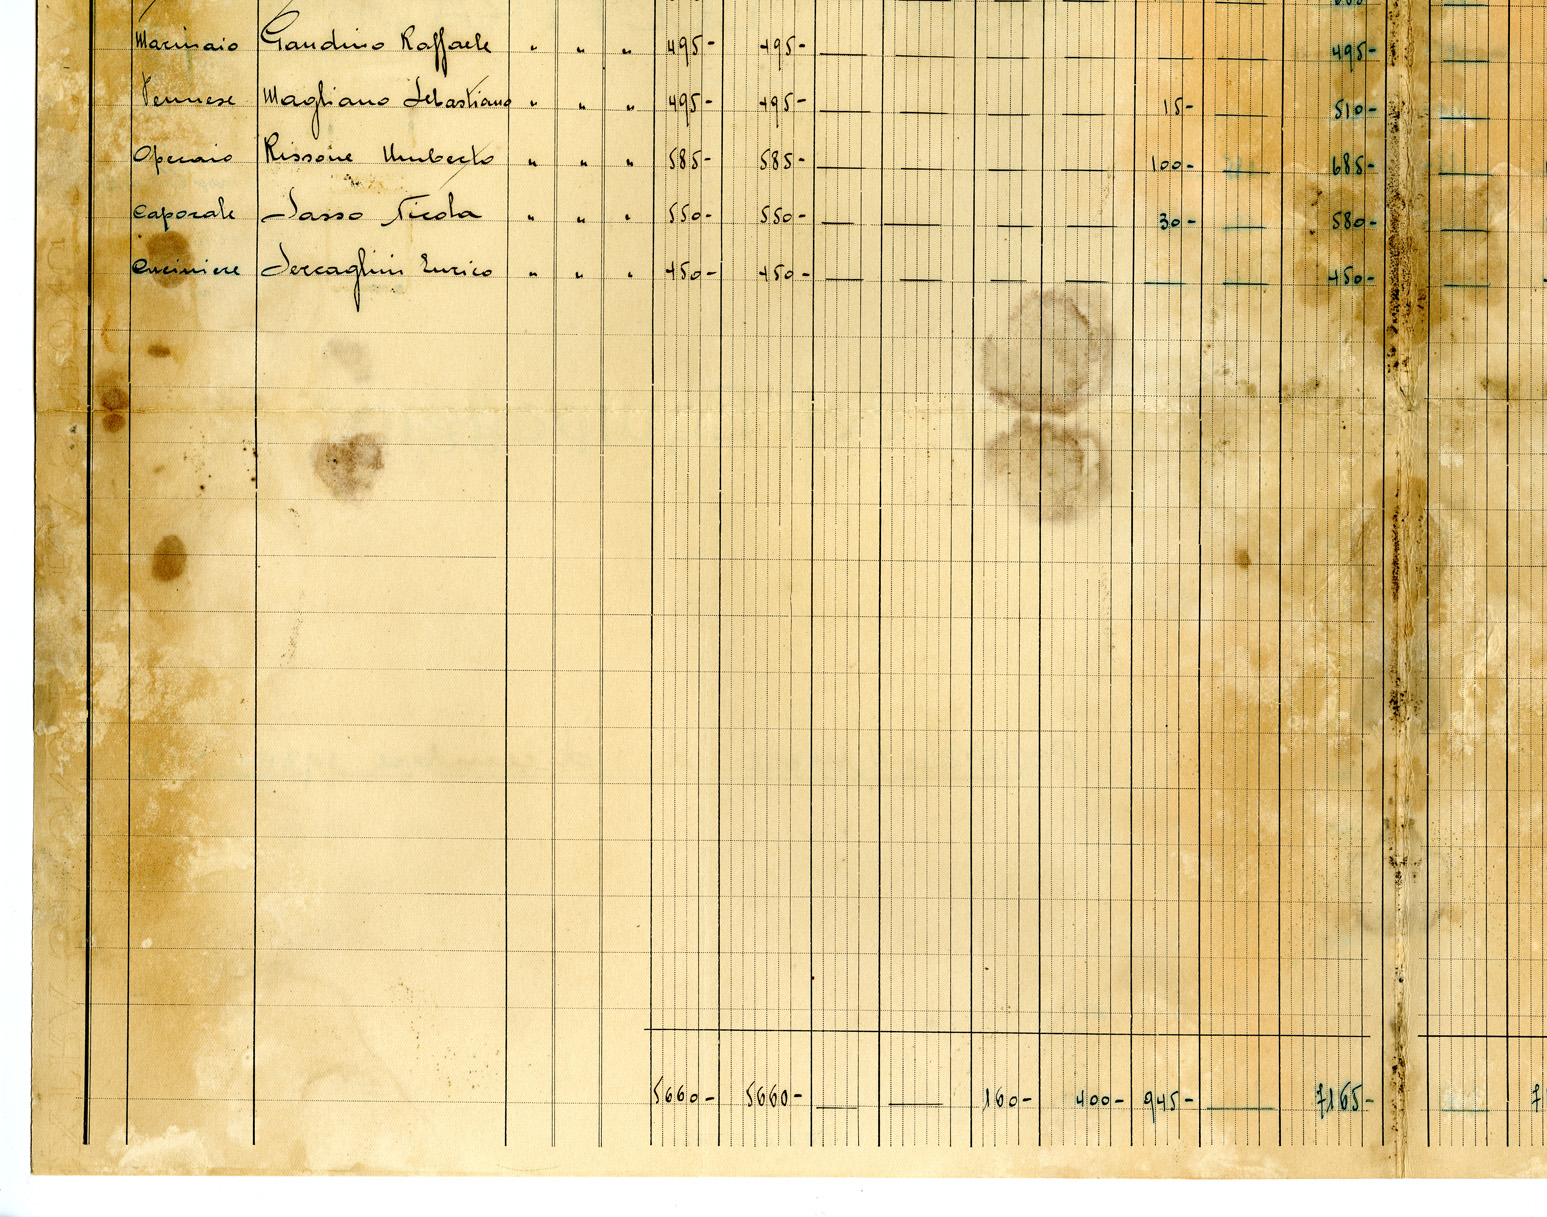 Marinaio Gaudino Raffaele " " " 495- 495- — — — — — — 495- —
Pennese Magliano Sebastiano " " " 495- 495- — — — — 15- — 510- —
Operaio Rissone Umberto " " " 585- 585- — — — — 100- — 685- —
Caporale Sasso Nicola " " " 550- 550- — — — — 30- — 580- —
Cuciniere Sercaglini Enrico " " " 450- 450- — — — — — — 450- —
5660- 5660- — — 160- 400- 945- — 7165- —